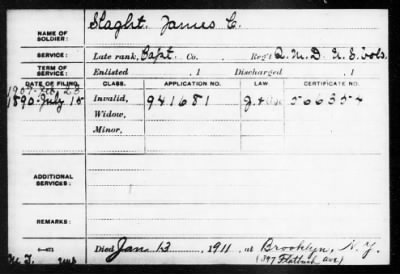 NAME OF SOLDIER: Slaght, James C.
SERVICE: Late rank, Capt. Co. , Reg't Q. M. D. U. S. Vols.
TERM OF SERVICE: Enlisted , 1 Discharged , 1
DATE OF FILING. CLASS. APPLICATION NO. LAW. CERTIFICATE NO.
1907 Feb. 23
1890 July 15 Invalid, 941681 566354
Widow,
Minor,
ADDITIONAL SERVICES:
REMARKS:
Died Jan 13, 1911, at Brooklyn, N.Y.
(397 Flatbush ave)